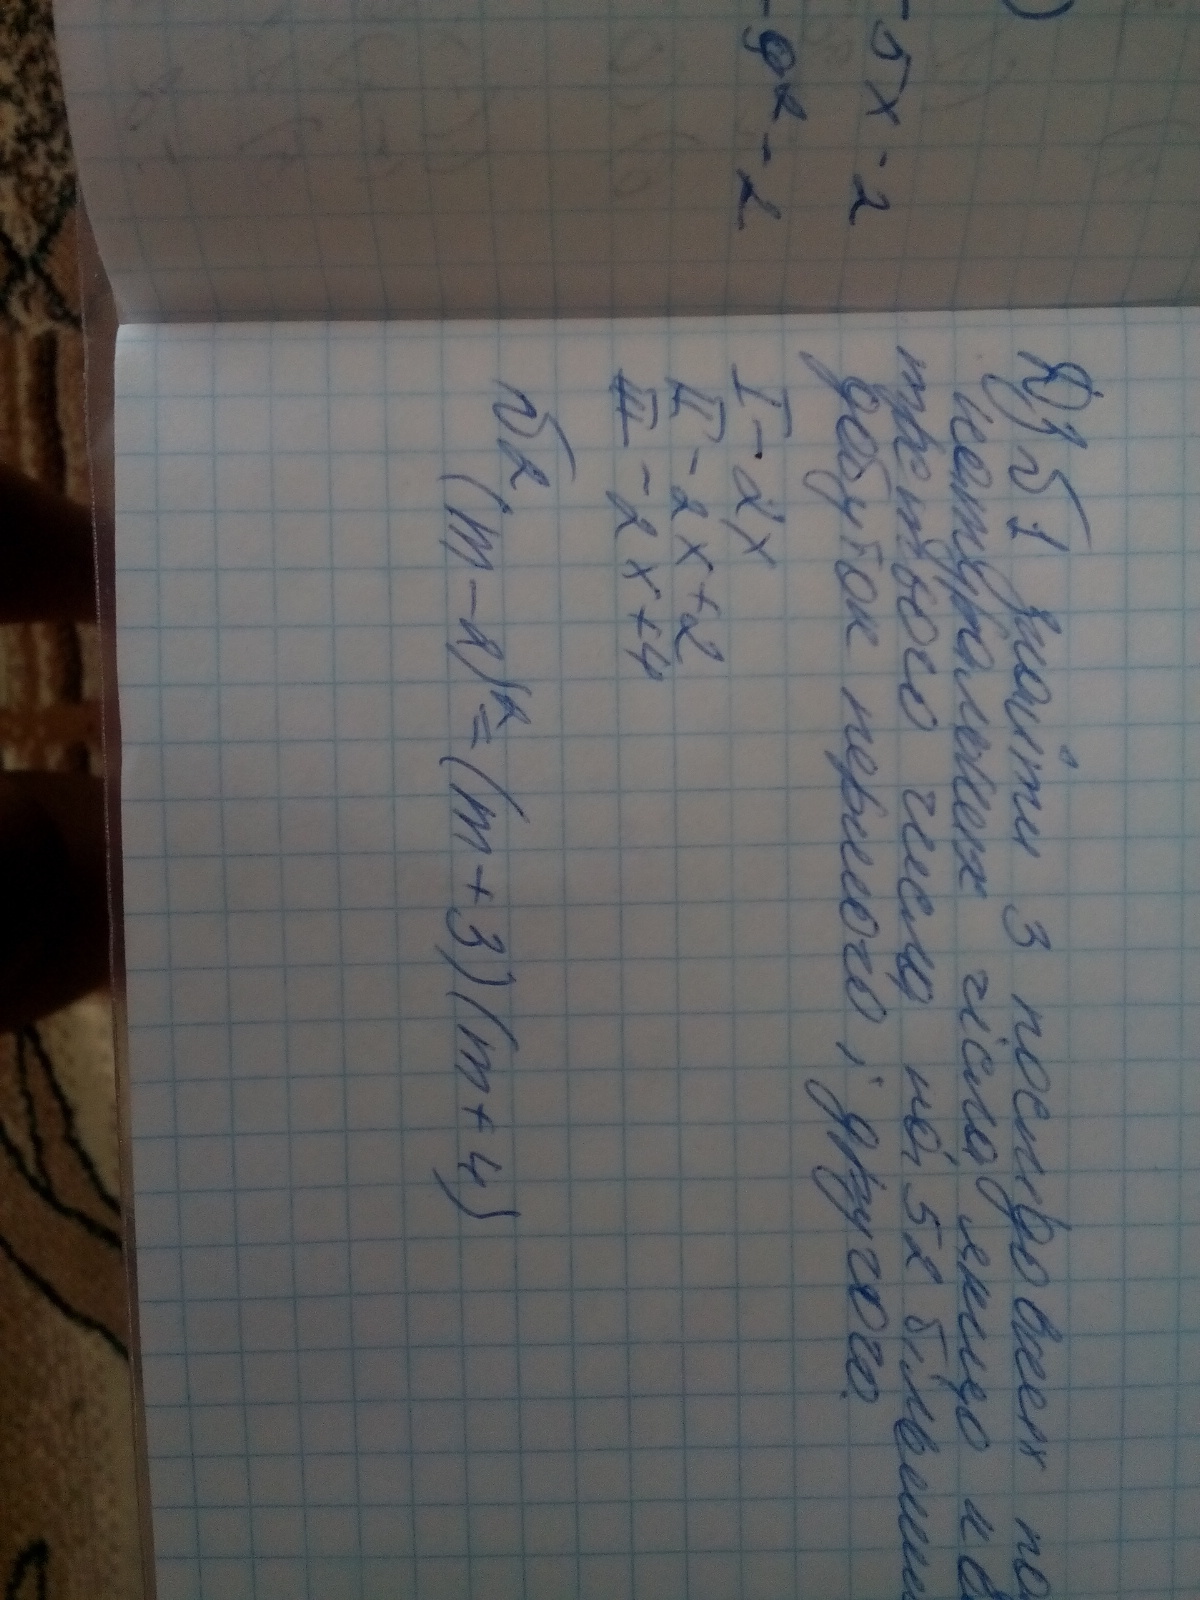 - 5x - 2
- 9x - 2
Д) б1 знайти 3 послідовних па
натуральних числа якщо кв
третього числа на 52 більший
добуток першого і другого.
I - 2x
II - 2x+2
III - 2x+4
б2
(m-8)²=(m+3)(m+4)